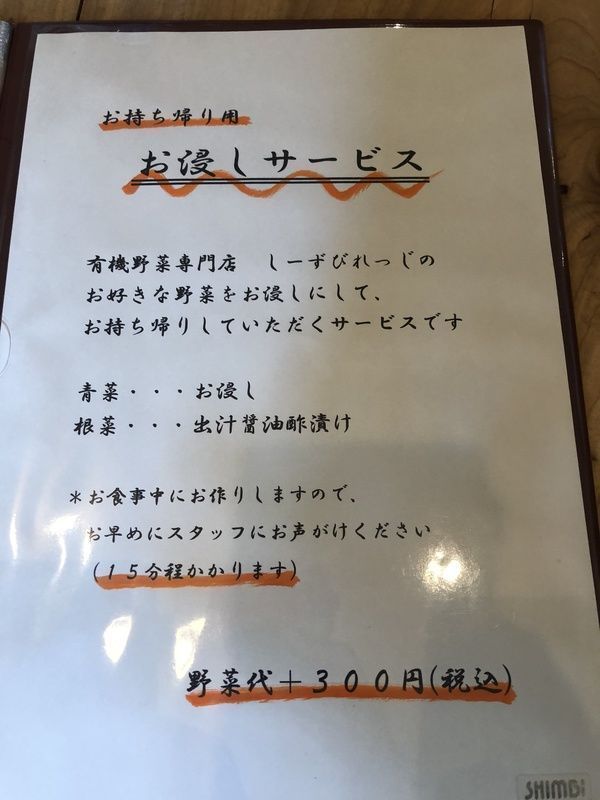 お持ち帰り用
お浸しサービス
有機野菜専門店　しーずびれっじの
お好きな野菜をお浸しにして、
お持ち帰りしていただくサービスです
青菜・・・お浸し
根菜・・・出汁醤油酢漬け
＊お食事中にお作りしますので、
お早めにスタッフにお声がけください
(１５分程かかります)
野菜代＋３００円(税込)
SHIMBI